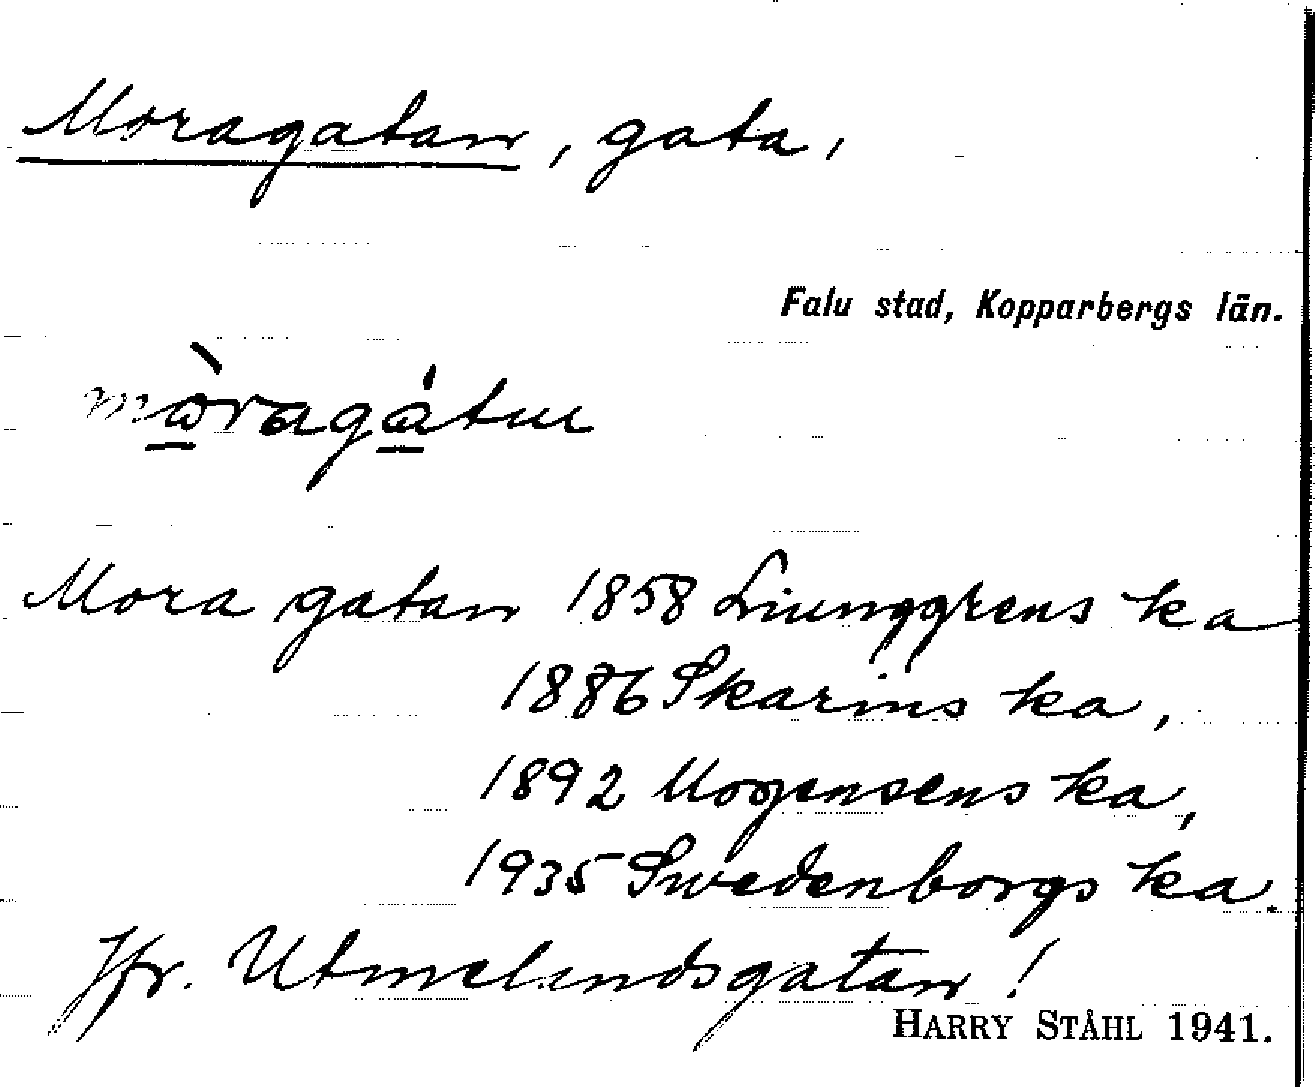 Moragatan, gata,
Falu stad, Kopparbergs län.
mòragátun
Mora gatan 1858 Liunggrens ka
1886 Skarins ka,
1892 Mogensens ka,
1935 Swedenborgs ka.
Jfr. Utmelandsgatan!
HARRY STÅHL 1941.